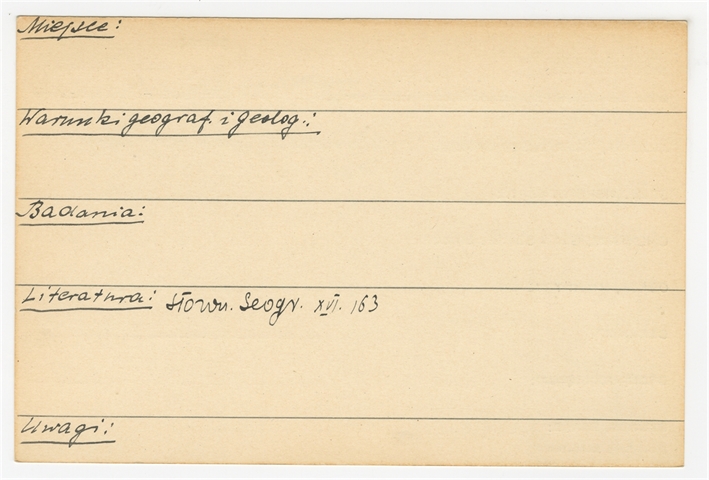 Miejsce:
Warunki geograf. i geolog.:
Badania:
Literatura: Słown. Geogr. XVI. 163
Uwagi: